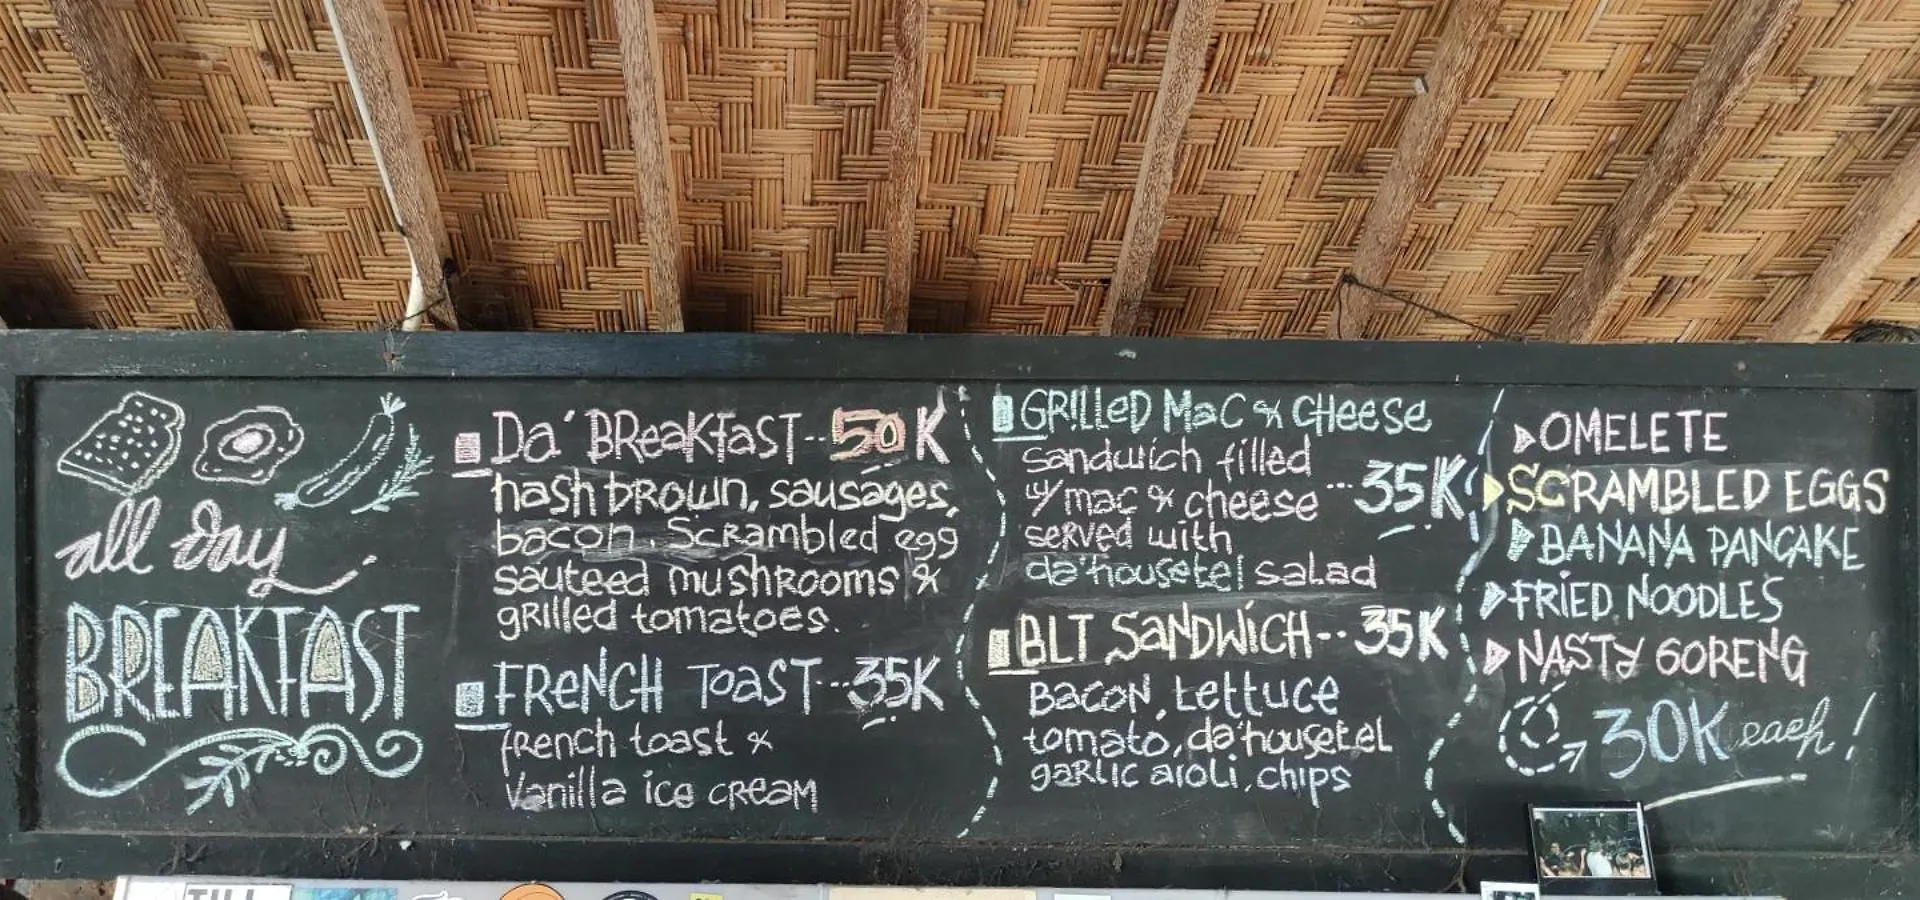 all day
BREAKFAST
Da' BReakfasT -- 50K
hash brown, sausages,
bacon, Scrambled egg
sauteed mushrooms &
grilled tomatoes.
FRENCH TOAST --- 35K
french toast &
Vanilla ice cream
GRILLED MaC & CHeese
sandwich filled
w/mac & cheese --- 35K
served with
da'housetel salad
BLT SANDWICH -- 35K
BACON, Lettuce
tomato, da'housetel
garlic aioli, chips
OMELETE
SCRAMBLED EGGS
BANANA PANCAKE
FRIED NOODLES
NASTY GORENG
30K each!